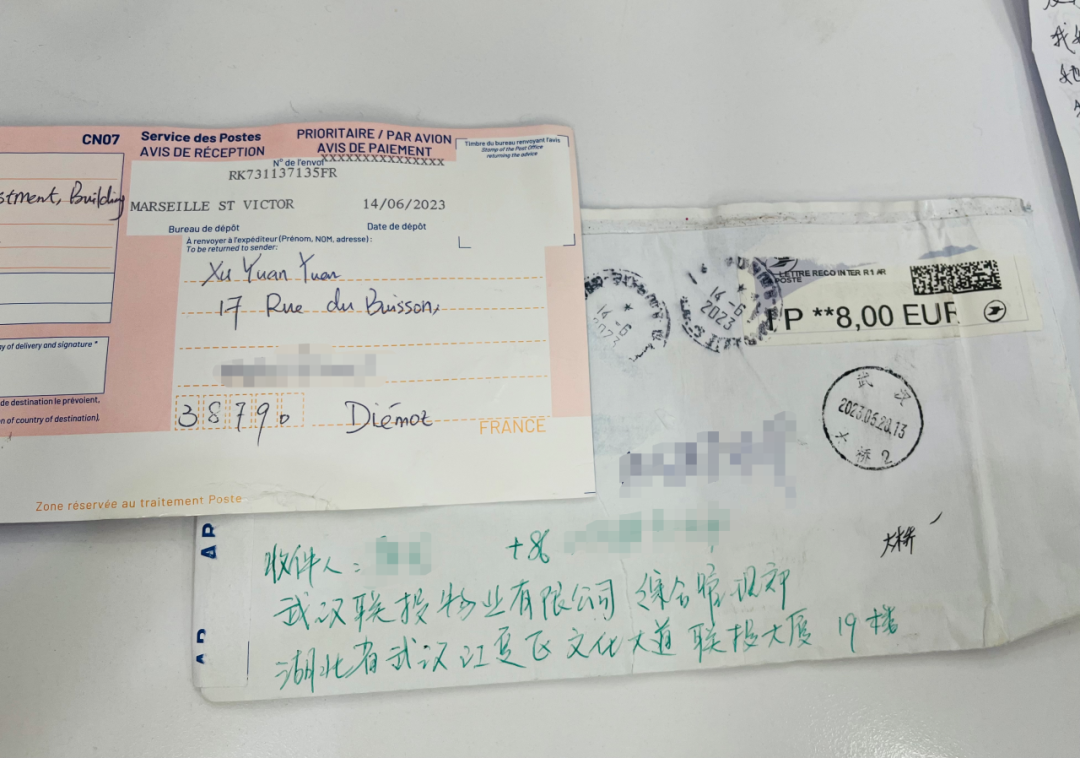 CN07
Service des Postes
AVIS DE RÉCEPTION
PRIORITAIRE / PAR AVION
AVIS DE PAIEMENT
XXXXXXXXXXXXXXXX
Timbre du bureau renvoyant l'avis
Stamp of the Post Office
returning the advice
N° de l'envoi
RK731137135FR
MARSEILLE ST VICTOR 14/06/2023
Bureau de dépôt Date de dépôt
À renvoyer à l'expéditeur (Prénom, NOM, adresse) :
To be returned to sender:
Xu Yuan Yuan
17 Rue du Buisson,
38790 Diémoz
FRANCE
stment, Building
y of delivery and signature *
de destination le prévoient,
n of country of destination).
Zone réservée au traitement Poste
LETTRE RECO INTER R1 AR
POSTE
P **8,00 EUR
14-6
2023
14-6
2023
武汉
2023.05.20.13
大桥2
大桥
AR
AR
收件人： +86
武汉联投物业有限公司 综合管理部
湖北省武汉江夏区文化大道联投大厦 19楼
我